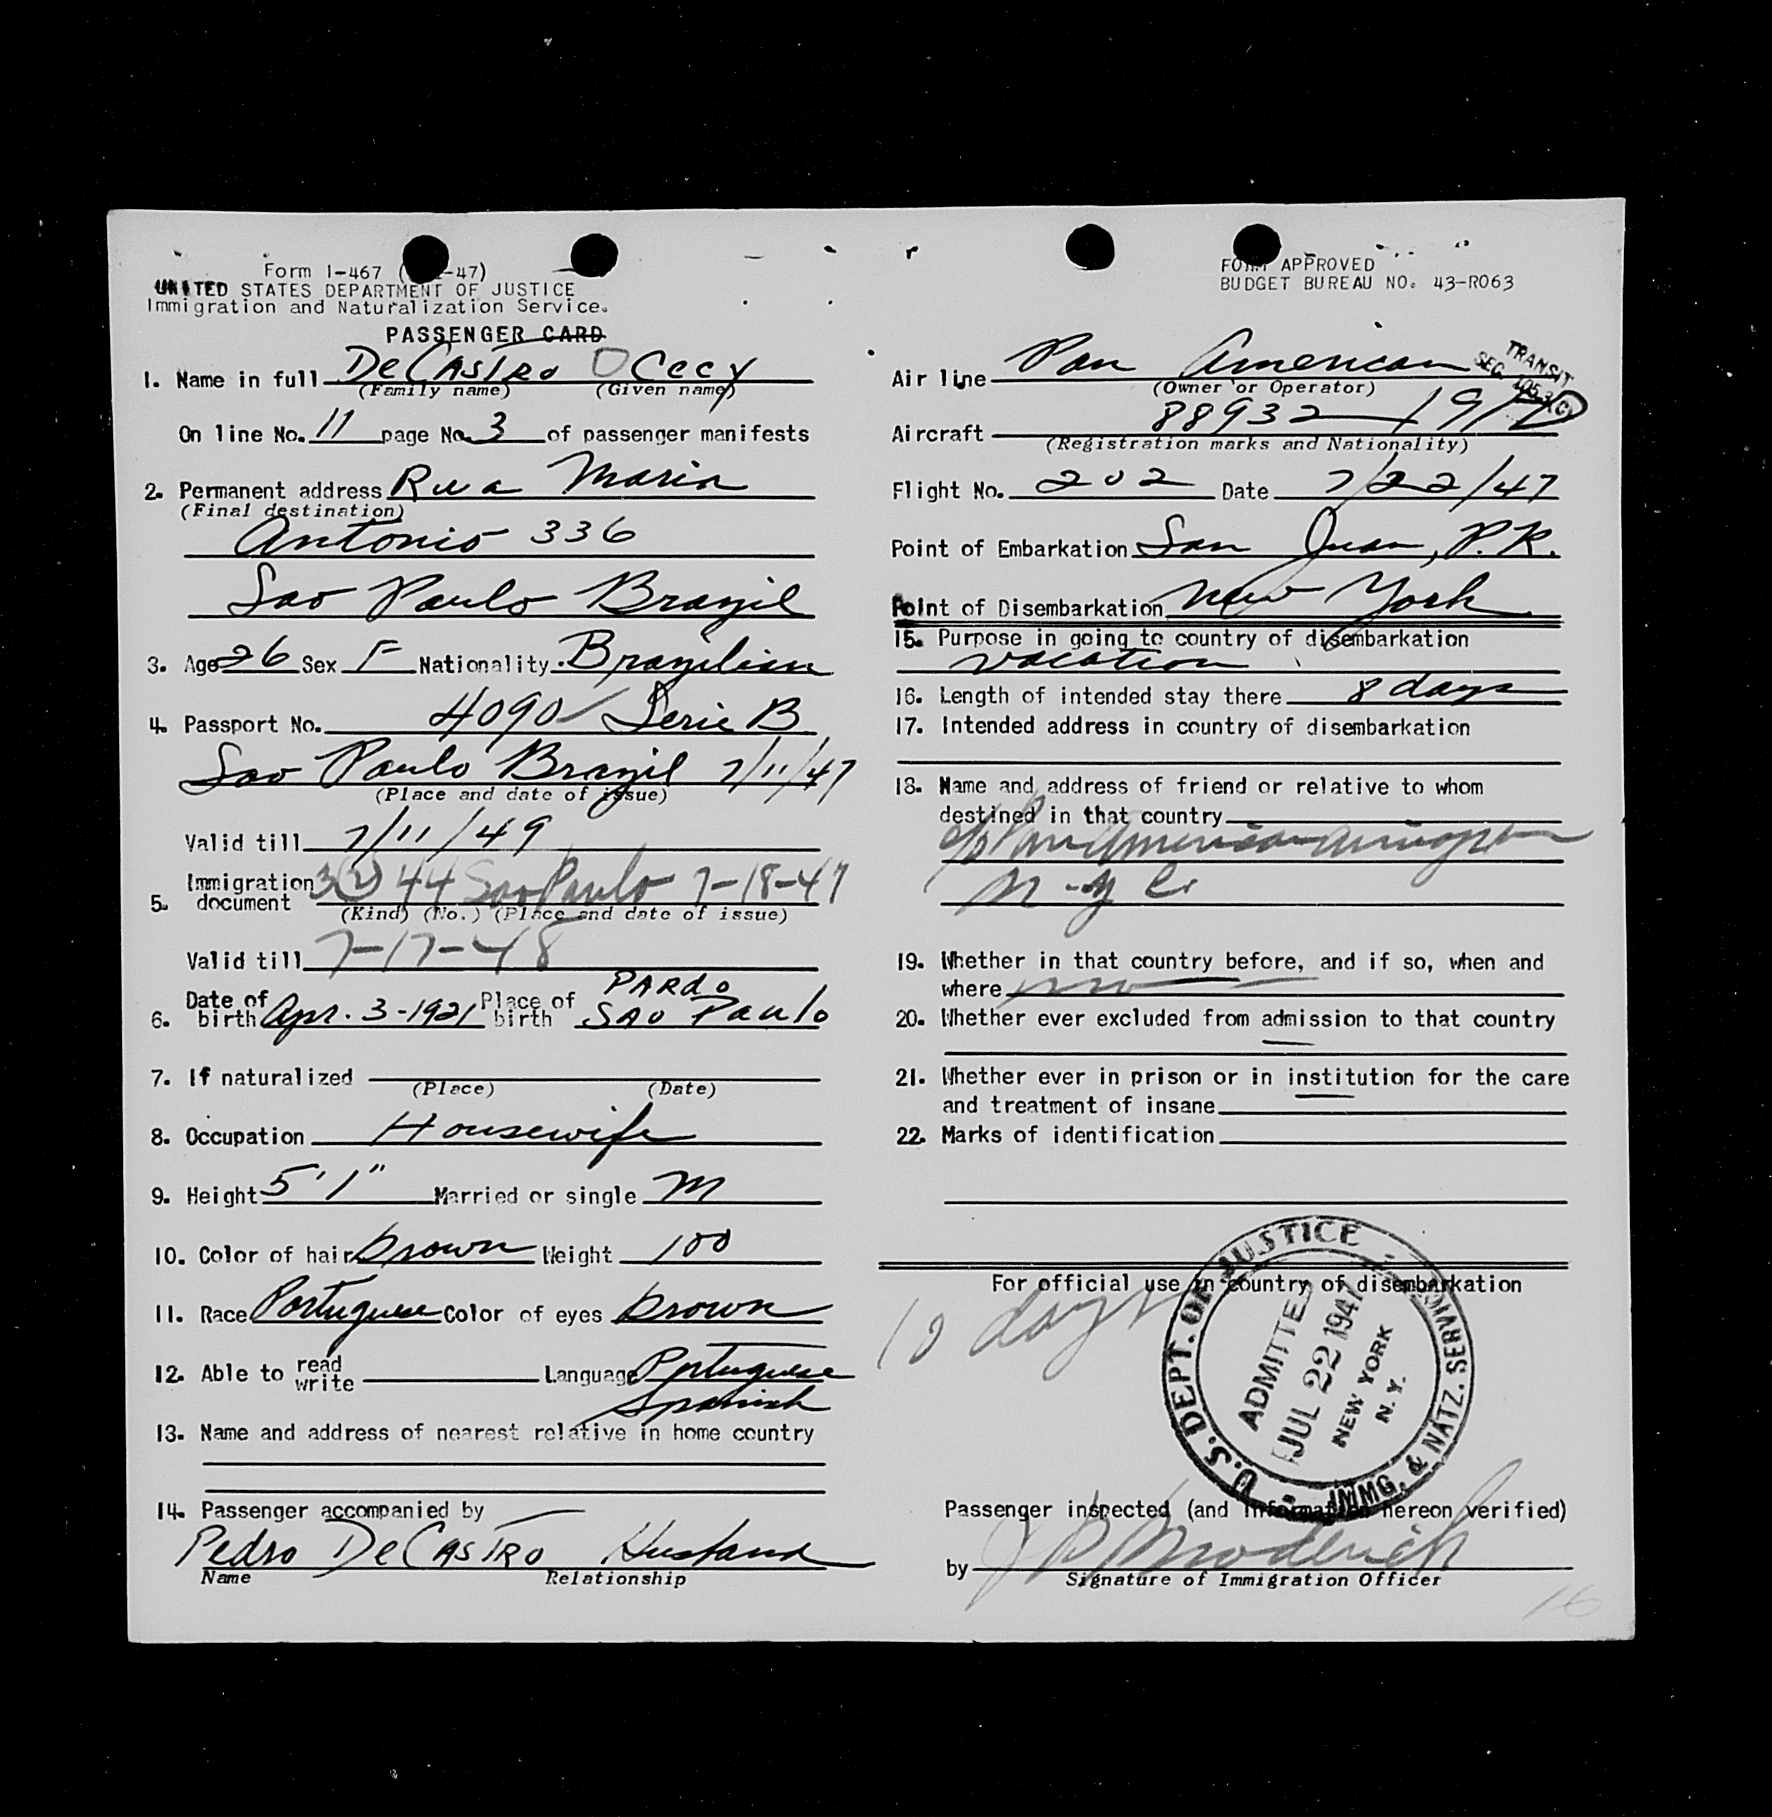 Form I-467 ( -47)
UNITED STATES DEPARTMENT OF JUSTICE
Immigration and Naturalization Service.
PASSENGER CARD
1. Name in full DeCastro Cecy
(Family name) (Given name)
On line No. 11 page No. 3 of passenger manifests
2. Permanent address Rua Maria
(Final destination)
Antonio 336
Sao Paulo Brazil
3. Age 26 Sex F Nationality Brazilian
4. Passport No. 4090 Serie B
Sao Paulo Brazil 7/11/47
(Place and date of issue)
Valid till 7/11/49
5. Immigration document 3(2) 44 Sao Paulo 7-18-47
(Kind) (No.) (Place and date of issue)
Valid till 7-17-48
6. Date of birth Apr. 3-1921 Place of birth PARDO
SAO Paulo
7. If naturalized
(Place) (Date)
8. Occupation Housewife
9. Height 5'1" Married or single M
10. Color of hair brown Weight 100
11. Race Portuguese Color of eyes brown
12. Able to read write Language Portuguese
Spanish
13. Name and address of nearest relative in home country
14. Passenger accompanied by
Pedro DeCastro Husband
Name Relationship
FORM APPROVED
BUDGET BUREAU NO. 43-R063
Air line Pan American
(Owner or Operator)
TRANSIT
SEC.
Aircraft 88932
(Registration marks and Nationality)
Flight No. 202 Date 7/22/47
Point of Embarkation San Juan, P.R.
Point of Disembarkation New York
15. Purpose in going to country of disembarkation
vacation
16. Length of intended stay there 8 days
17. Intended address in country of disembarkation
18. Name and address of friend or relative to whom
destined in that country
c/o Pan American Airways
N-Y C.
19. Whether in that country before, and if so, when and
where no
20. Whether ever excluded from admission to that country
21. Whether ever in prison or in institution for the care
and treatment of insane
22. Marks of identification
For official use in country of disembarkation
10 days
U.S. DEPT. OF JUSTICE - IMMG. & NATZ. SERVICE -
ADMITTED
JUL 22 1947
NEW YORK
N.Y.
Passenger inspected (and information hereon verified)
by
Signature of Immigration Officer
16